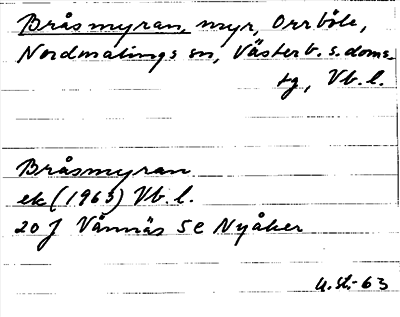 Bråsmyran, myr, Orrböle,
Nordmalings sn, Västerb. s. doms.
sg, Vb. l.
Bråsmyran
ek (1963) Vb. l.
20 J Vännäs 5e Nyåker
U. St. -63